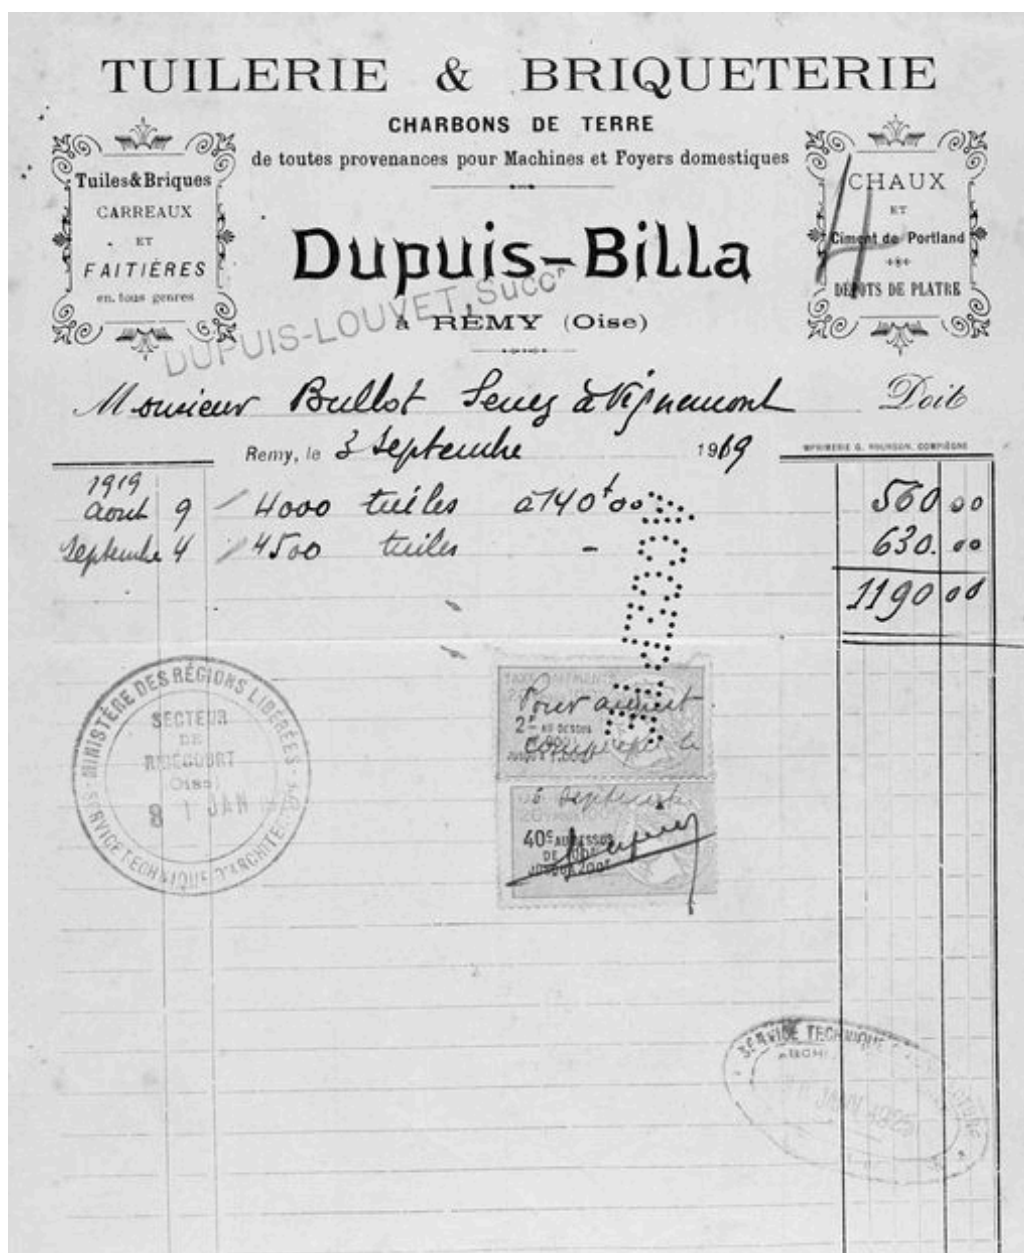 TUILERIE & BRIQUETERIE
CHARBONS DE TERRE
de toutes provenances pour Machines et Foyers domestiques
Tuiles & Briques
CARREAUX
ET
FAITIÈRES
en tous genres
CHAUX
ET
Ciment de Portland
DÉPOTS DE PLATRE
Dupuis-Billa
DUPUIS-LOUVET, Succr
à RÉMY (Oise)
Monsieur Bullot à Vignemont Doit
Remy, le 3 Septembre 1919
IMPRIMERIE G. COMPIÈGNE
1919
Aout 9 4000 tuiles à 140f00 560 00
Septembre 4 4500 tuiles - 630. 00
1190 00
MINISTÈRE DES RÉGIONS LIBÉRÉES
SECTEUR
DE
RIBÉCOURT
(Oise)
JAN
SERVICE TECHNIQUE D'ARCHITECTURE
Pour acquit
2F AU DESSUS
Septembre
40c AU DESSUS
DE 100F
JUSQU'A 200F
SERVICE TECHNIQUE
JANV